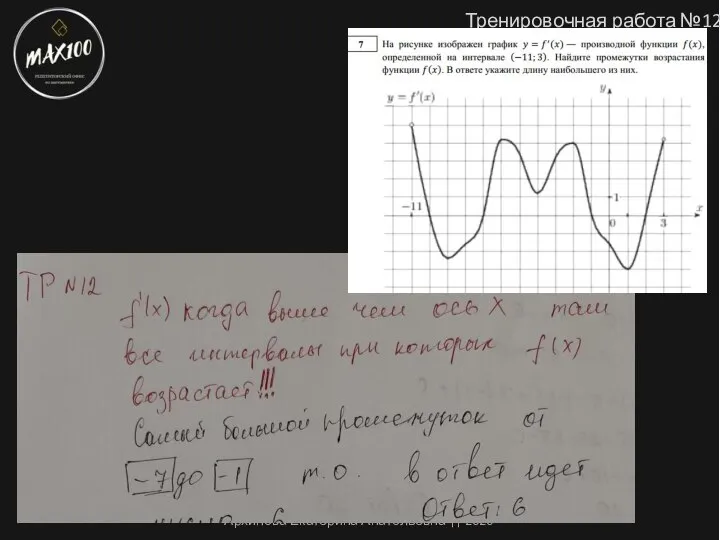 Тренировочная работа №12
MAX100
7 На рисунке изображен график y = f′(x) — производной функции f(x),
определенной на интервале (−11; 3). Найдите промежутки возрастания
функции f(x). В ответе укажите длину наибольшего из них.
y = f′(x)
y
−11
1
0
3
x
ТР №12
f′(x) когда выше чем ось X там
все интервалы при которых f(x)
возрастает!!!
Самый большой промежуток от
-7 до -1 т.о. в ответ идет
число 6 Ответ: 6